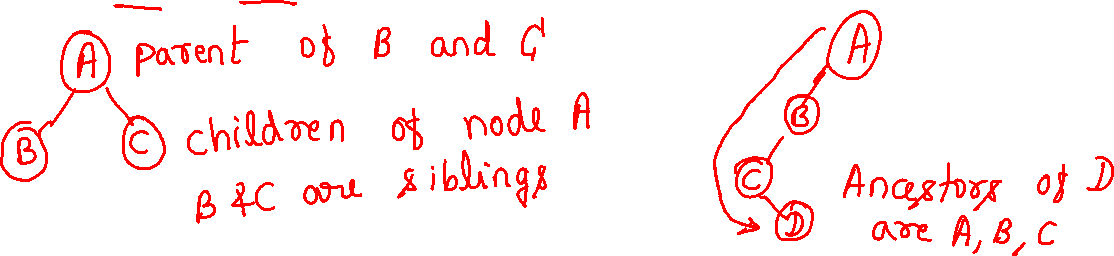 A parent of B and C
B C children of node A
B & C are siblings
A
B
C
D
Ancestors of D
are A, B, C